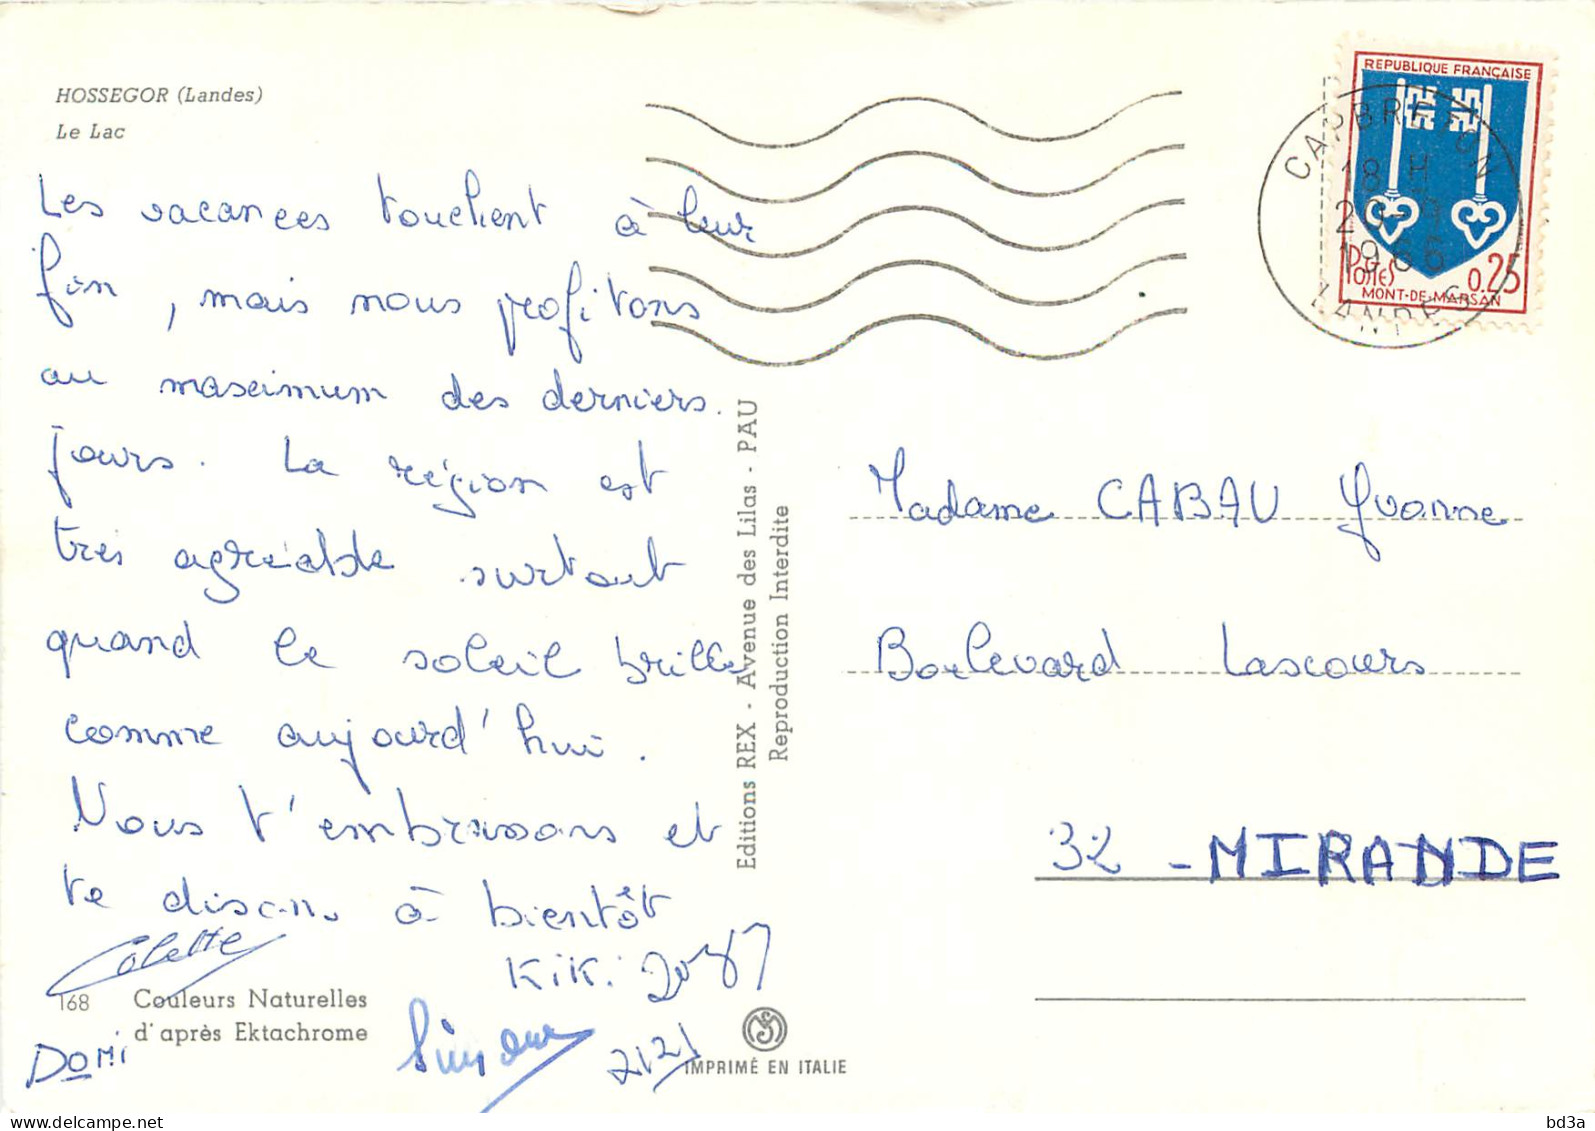 HOSSEGOR (Landes)
Le Lac
Les vacances touchent à leur
fin, mais nous profitons
au maximum des derniers.
jours. La région est
très agréable surtout
quand le soleil brille
comme aujourd'hui.
Nous t'embrassons et
te disons à bientôt
Colette
KiKi
DOMi
Simone
2121
168 Couleurs Naturelles
d'après Ektachrome
Editions REX - Avenue des Lilas - PAU
Reproduction Interdite
IMPRIMÉ EN ITALIE
REPUBLIQUE FRANÇAISE
POSTES
0.25
MONT-DE-MARSAN
CAPBRETON
18 H
1966
LANDES
Madame CABAU Yvonne
Boulevard Lascours
32 - MIRANDE
bd3a